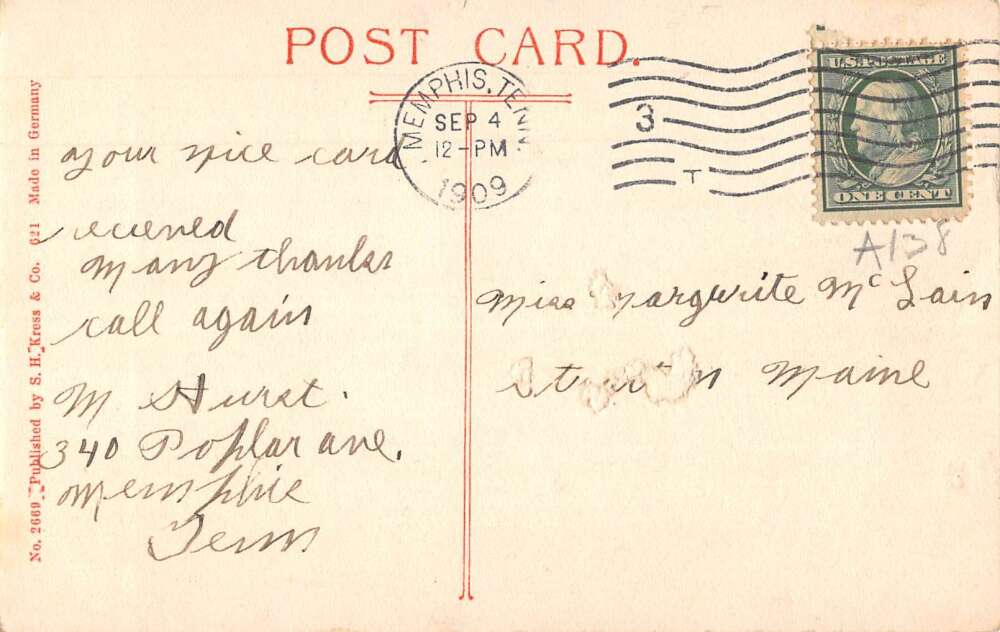 POST CARD.
MEMPHIS, TENN.
SEP 4
12-PM
1909
3
T
U.S. POSTAGE
ONE CENT
A138
your nice card
recieved
many thanks
call again
M Hurst.
340 Poplar ave.
Memphis
Tenn
Miss Margurite McLain
Maine
No. 2669 Published by S. H. Kress & Co. 621 Made in Germany